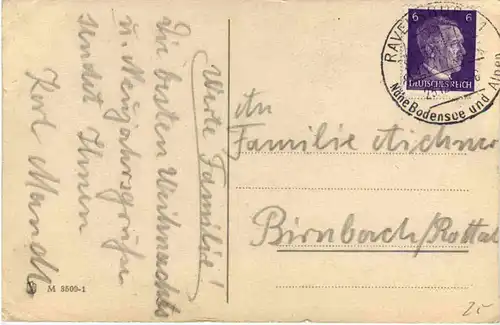 Werte Familie!
Die besten Weihnachts
u. Neujahrsgrüße
sendet Ihnen
Karl Mandl
An
Familie Aichner
Birnbach/Rottal
6 6
DEUTSCHES REICH
RAVENSBURG 1
Nähe Bodensee und Alpen
M 8500-1
25